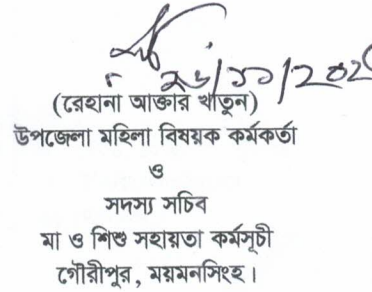 (রেহানা আক্তার খাতুন)
উপজেলা মহিলা বিষয়ক কর্মকর্তা
ও
সদস্য সচিব
মা ও শিশু সহায়তা কর্মসূচী
গৌরীপুর, ময়মনসিংহ।